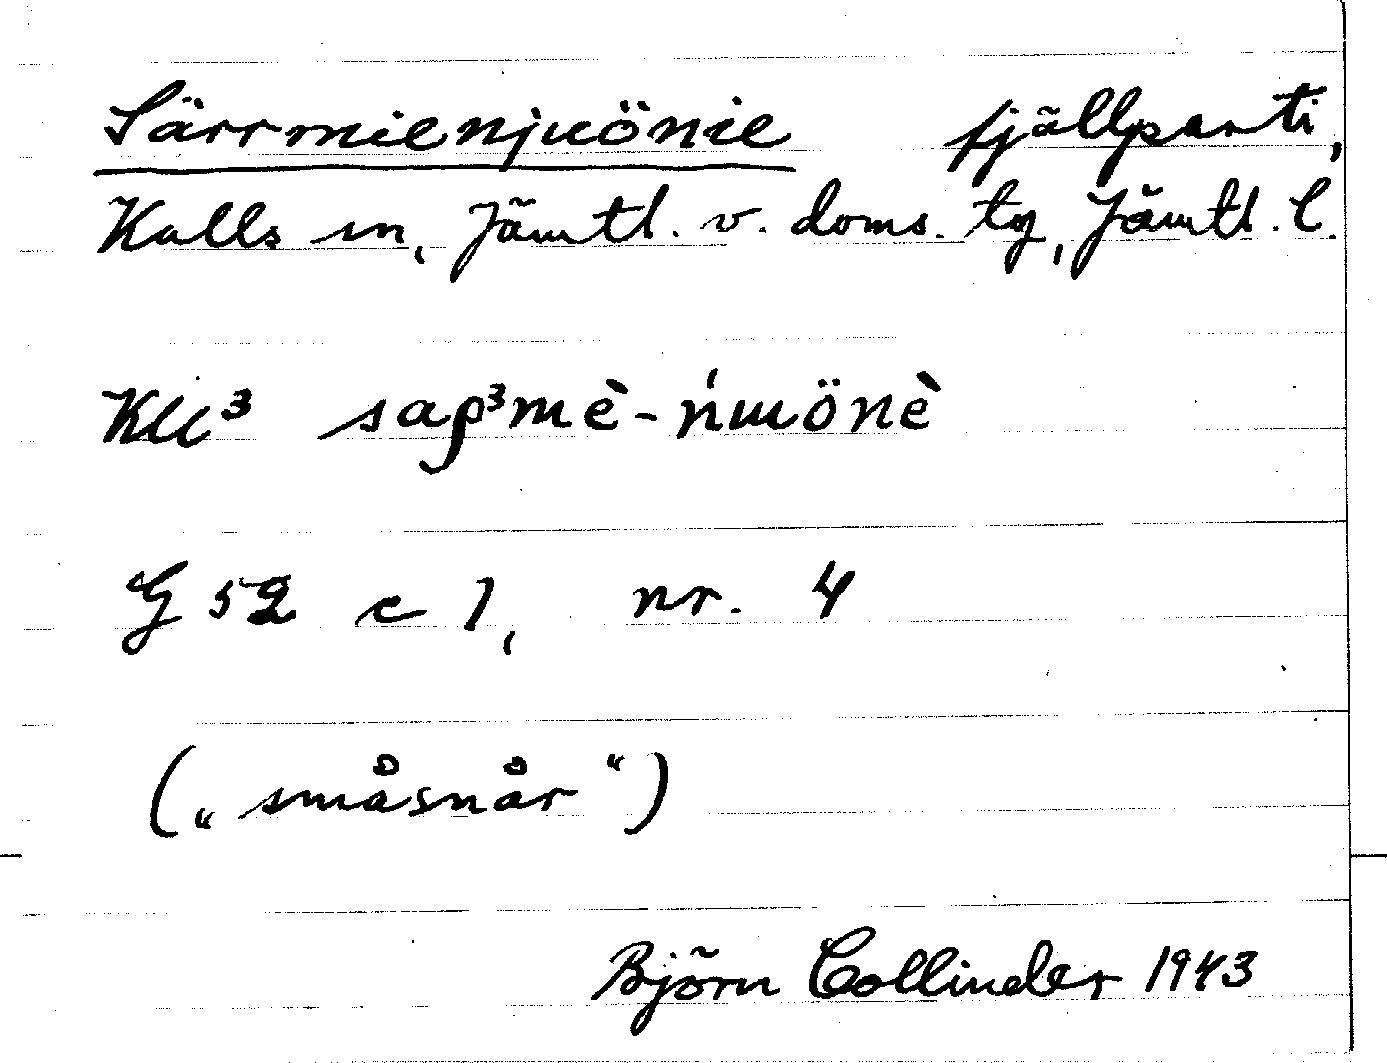 Särrmienjuönie fjällparti,
Kalls sn, Jämtl. v. doms. tg, Jämtl. l.
Kll³ saρ³mè-ńɯönè
G 52 c 1, nr. 4
(„småsnår“)
Björn Collinder 1943